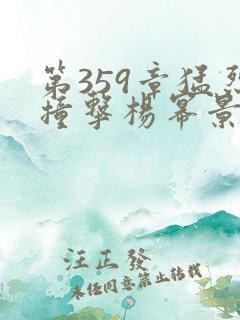 第359章猛烈
撞擊楊冪景
汪正發
未经同意禁止转载